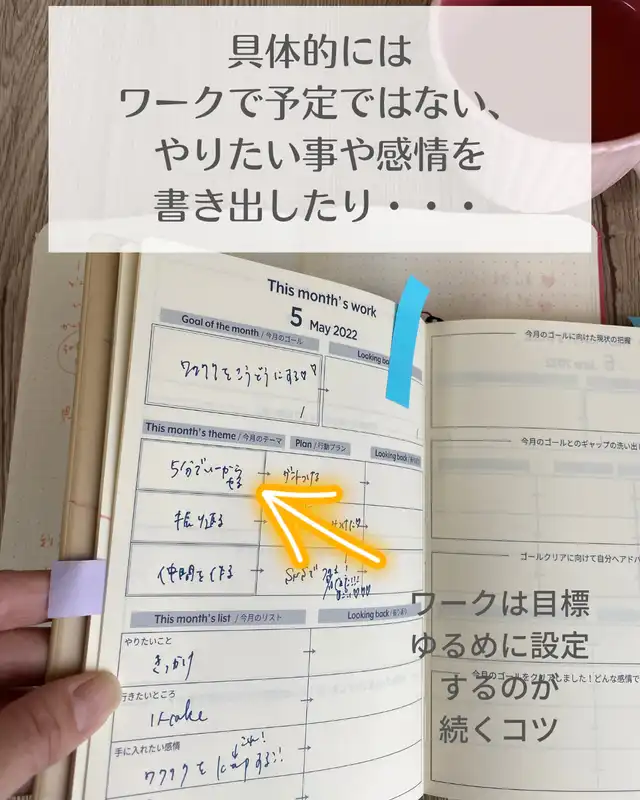 具体的には
ワークで予定ではない、
やりたい事や感情を
書き出したり・・・
This month's work
5 May 2022
Goal of the month / 今月のゴール
Looking ba
ワクワクをこうどうにする♡♡
This month's theme / 今月のテーマ
Plan / 行動プラン
Looking back
5分でいーから
やる
振り返る
仲間を作る
This month's list / 今月のリスト
Looking back
やりたいこと
きっかけ
行きたいところ
手に入れたい感情
これ!
ワクワクを
今月のゴールに向けた現状の把握
今月のゴールとのギャップの洗い出し
ゴールクリアに向けて自分へアドバ
今月のゴールをクリアしました!どんな感情で
ワークは目標
ゆるめに設定
するのが
続くコツ